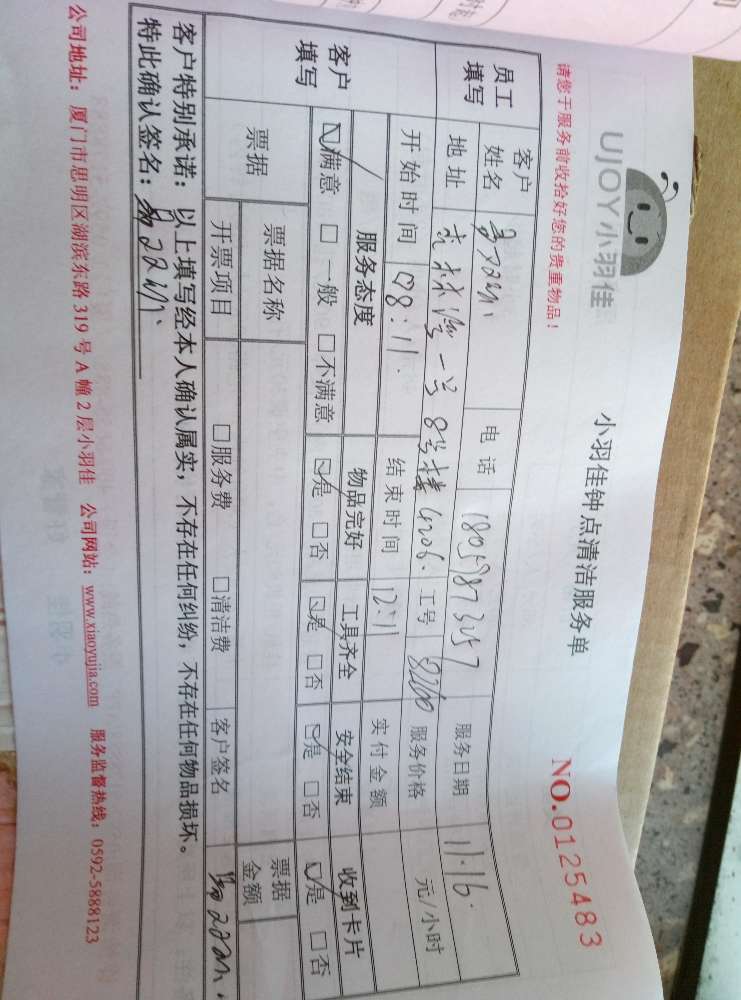 UJOY小羽佳
小羽佳钟点清洁服务单
NO.0125483
请您于服务前收拾好您的贵重物品！
员工填写
客户姓名
电话 18059873257
服务日期 11.16.
地址 一号8号楼 4206.
工号 8200
服务价格 元/小时
开始时间 08:11
结束时间 12:11
实付金额
客户填写
服务态度 物品完好 工具齐全 安全结束 收到卡片
☑满意 □一般 □不满意 ☑是 □否 ☑是 □否 ☑是 □否 ☑是 □否
票据
票据名称
票据金额
开票项目 □服务费 □清洁费
客户签名
客户特别承诺：以上填写经本人确认属实，不存在任何纠纷，不存在任何物品损坏。
特此确认签名：
公司地址：厦门市思明区湖滨东路319号A幢2层小羽佳 公司网站：www.xiaoyujia.com 服务监督热线：0592-5888123